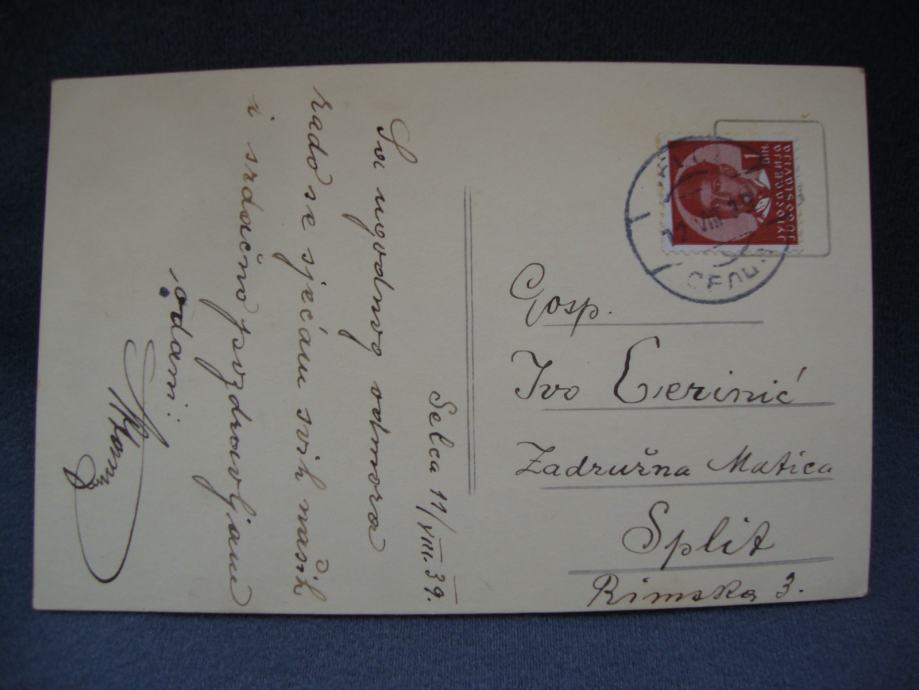 Selca 11/VIII.39.
Sa ugodnog odmora
rado se sjećam svih naših
i srdačno pozdravljam
odani:
Gosp.
Ivo Cerinić
Zadružna Matica
Split
Rimska 3.
1
ЈУГОСЛАВИЈА
JUGOSLAVIJA
VIII